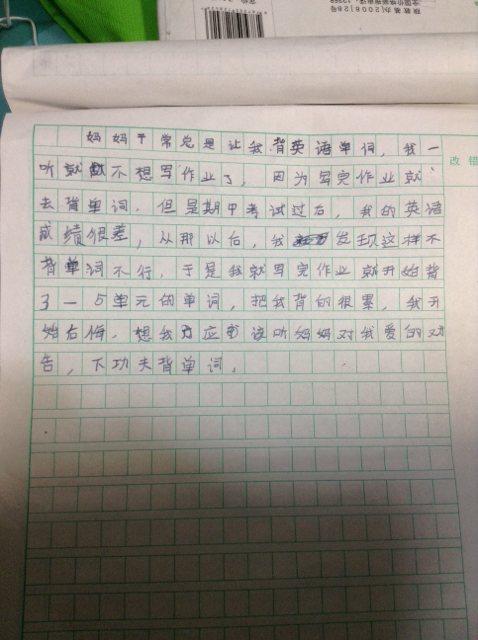 妈妈平常总是让我背英语单词，我一
听就不想写作业了，因为写完作业就
去背单词，但是期中考试过后，我的英语
成绩很差，从那以后，我发现这样不
背单词不行，于是我就写完作业就开始背
了一5单元的单词，把我背的很累，我开
始后悔，想我应该听妈妈对我爱的劝
告，下功夫背单词。
改错